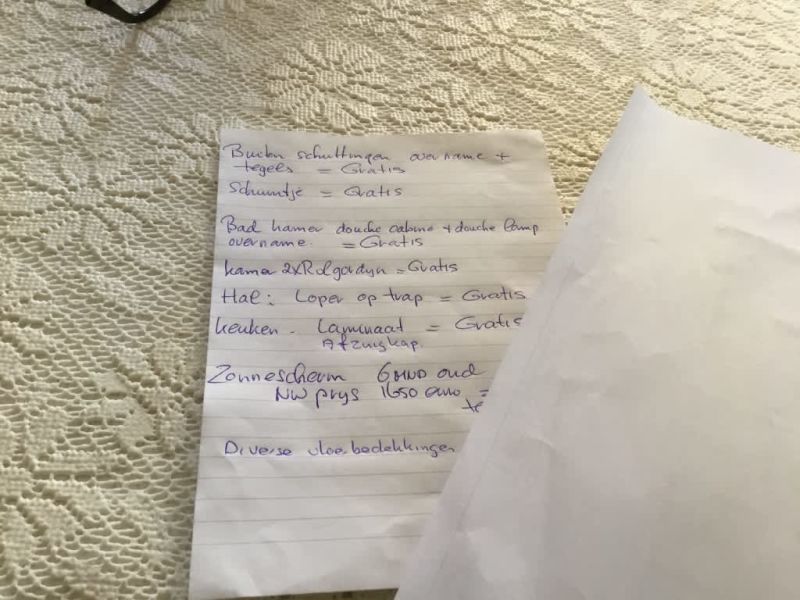 Buiten schuttingen overname +
tegels = Gratis
Schuurtje = Gratis
Bad kamer douche cabine + douche lamp
overname. = Gratis
kamer 2x Rolgordyn = Gratis
Hal: Loper op trap = Gratis
keuken - Laminaat = Gratis
Afzuigkap.
Zonnescherm 6 MND oud
NW prys 1650 euro =
te
Diverse vloerbedekkingen